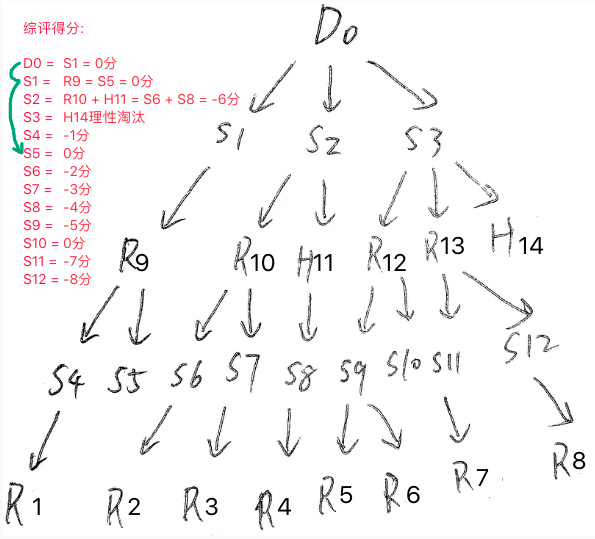 综评得分:
D0 = S1 = 0分
S1 = R9 = S5 = 0分
S2 = R10 + H11 = S6 + S8 = -6分
S3 = H14理性淘汰
S4 = -1分
S5 = 0分
S6 = -2分
S7 = -3分
S8 = -4分
S9 = -5分
S10 = 0分
S11 = -7分
S12 = -8分
D0
S1 S2 S3
R9 R10 H11 R12 R13 H14
S4 S5 S6 S7 S8 S9 S10 S11 S12
R1 R2 R3 R4 R5 R6 R7 R8